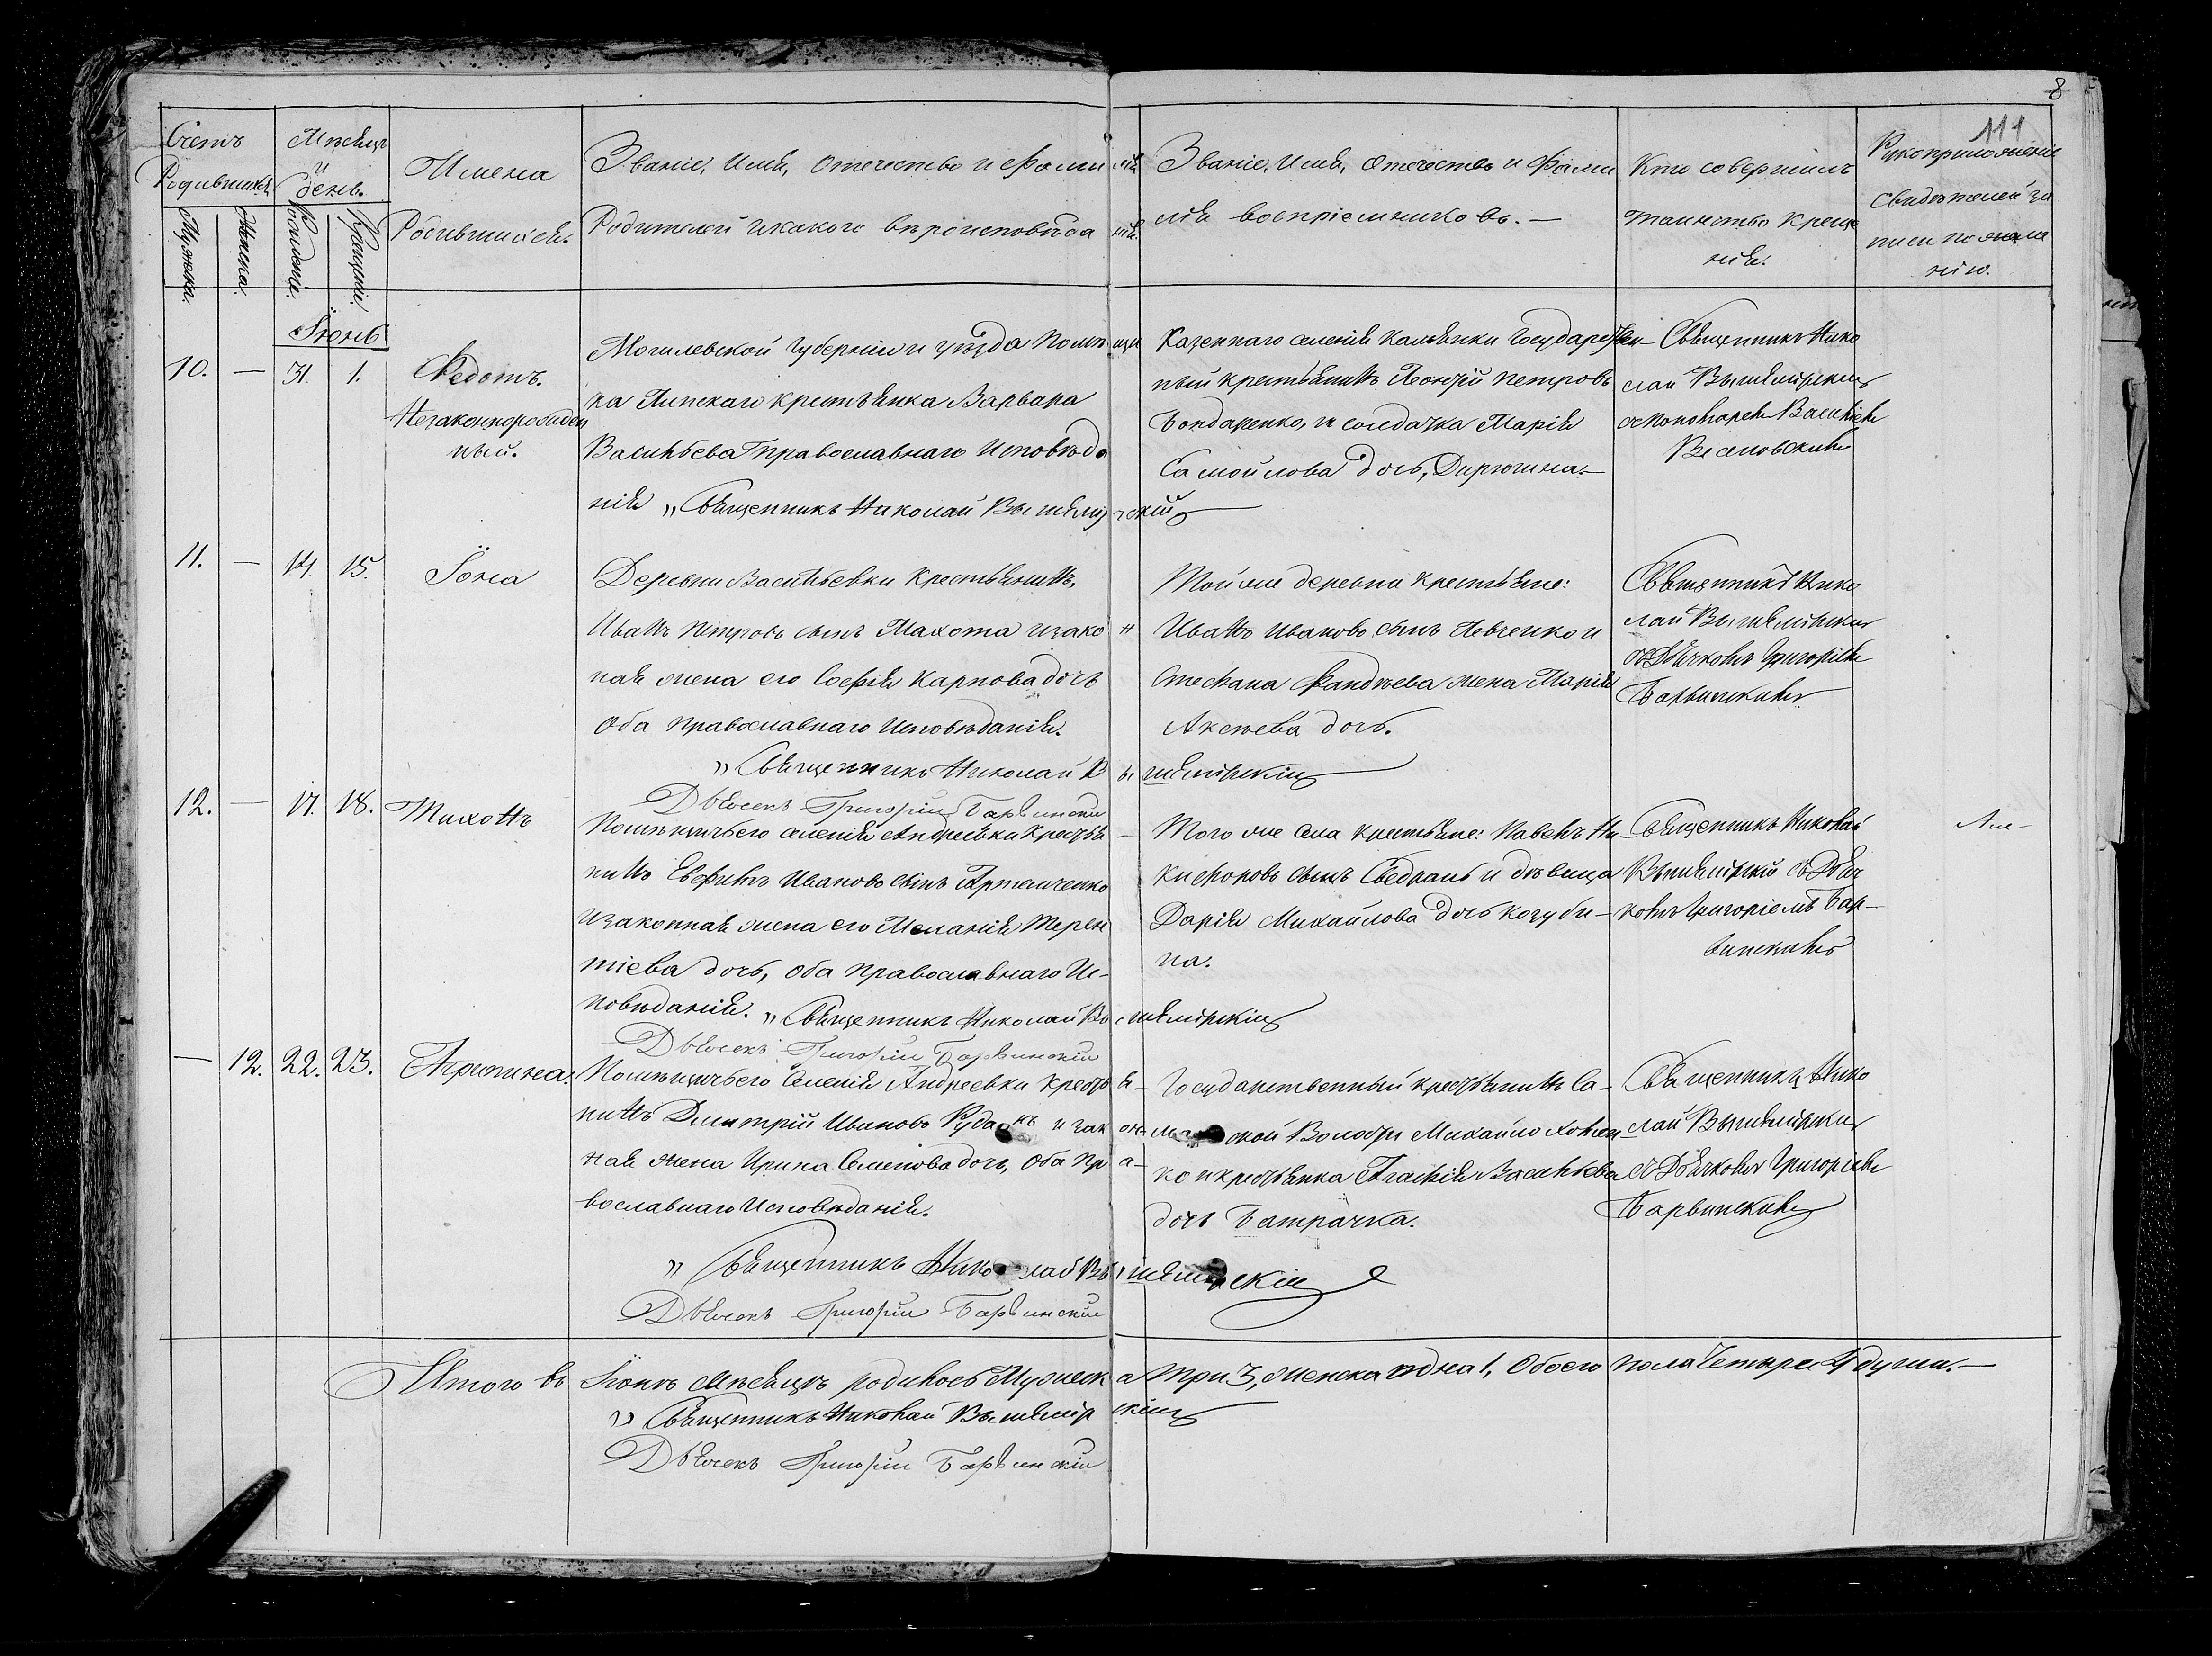 8
111
Счетъ
Родившихся
Мужеска.
Женска.
Мѣсяцъ
и
день.
Рожденія.
Крещенія.
Имена
Родившихся.
Званіе, Имя, Отчество и Фамилія
Родителей и какого вѣроисповѣданія.
Званіе, Имя, Отчество и Фами
лія воспріемниковъ. —
Кто совершилъ
таинство креще
нія.
Рукоприложеніе
свидѣтелей за
писи по жела
нію.
Іюнь
10. — 31. 1.
Федотъ.
Незаконнорожден
ный.
Могилевской Губерніи и уѣзда Помѣщи
ка Липскаго крестьянка Варвара
Васильева Православнаго Исповѣда
нія „ Священникъ Николай Вышемірскій
Казеннаго селенія Каменки Государствен
ный крестьянинъ Леонтій Петровъ
Бондаренко, и солдатка Марія
Самойлова дочь,
Священникъ Нико
лай Вышемірскій
съ Пономаремъ Василіемъ
Веселовскимъ
11. — 14. 15.
Іона
Деревни Васильевки Крестьянинъ,
Иванъ Петровъ сынъ Махота и закон
ная жена его Софія Карпова дочь
Оба православнаго Исповѣданія.
„ Священникъ Николай Вышемірскій
Дьячекъ Григорій Барвинскій
Той же деревни крестьяне:
Иванъ Ивановъ сынъ Левченко и
Стефана Фандѣева жена Марія
дочь.
Священникъ Нико
лай Вышемірскій
съ Дьячкомъ Григоріемъ
Барвинскимъ
12. — 17. 18.
Тихонъ
Помѣщичьего селенія Андреевки Крестья
нинъ Евфимъ Ивановъ сынъ Артемченко
и законная жена его Меланія Терен
тіева дочь, оба православнаго Ис-
повѣданія. „ Священникъ Николай Вышемірскій
Дьячекъ Григорій Барвинскій
Того же села крестьяне: Павелъ Ни-
кифоровъ сынъ и дѣвица
Дарія Михайлова дочь Козуби-
на.
Священникъ Николай
Вышемірскій съ Дьяч
комъ Григоріемъ Бар-
винскимъ
— 12. 22. 23.
Агрипина.
Помѣщичьего Селенія Андреевки Крестья-
нинъ Дмитрій Ивановъ Рудакъ и закон
ная жена Ирина Семенова дочь, Оба пра-
вославнаго Исповѣданія.
„ Священникъ Николай Вышемірскій
Дьячекъ Григорій Барвинскій
Государственный крестьянинъ Са-
ской Волости Михайло
ко и крестьянка Агафія Васильева
дочь Батрачка.
Священникъ Нико
лай Вышемірскій
съ Дьячкомъ Григоріемъ
Барвинскимъ
Итого въ Іюнѣ мѣсяцѣ родилось Мужеска три 3, женска одна 1, Обоего пола Четыре 4 души. —
„ Священникъ Николай Вышемірскій
Дьячекъ Григорій Барвинскій